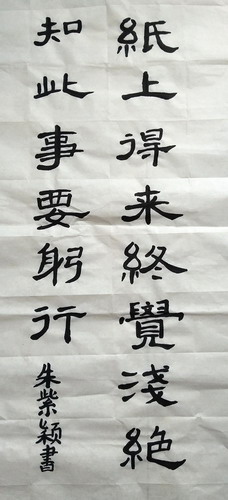 紙上得来終覺淺絶
知此事要躬行
朱紫颖書